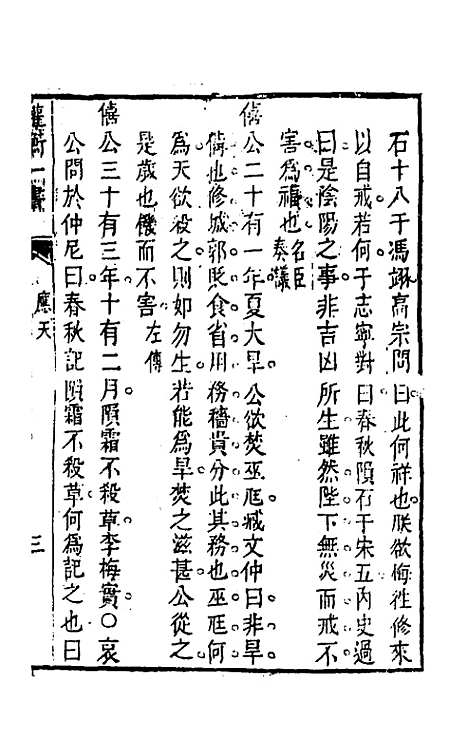 石十八于馮翊高宗問曰此何祥也朕欲悔徃修來
以自戒若何于志寧對曰春秋隕石于宋五內史過
曰是陰陽之事非吉凶所生雖然陛下無災而戒不
害爲福也名臣奏議
僖公二十有一年夏大旱公欲焚巫尫臧文仲曰非旱
備也修城郭貶食省用務穡勸分此其務也巫尫何
爲天欲殺之則如勿生若能爲旱焚之滋甚公從之
是歲也饑而不害左傳
僖公三十有三年十有二月隕霜不殺草李梅實○哀
公問於仲尼曰春秋記隕霜不殺草何爲記之也曰
應天
三